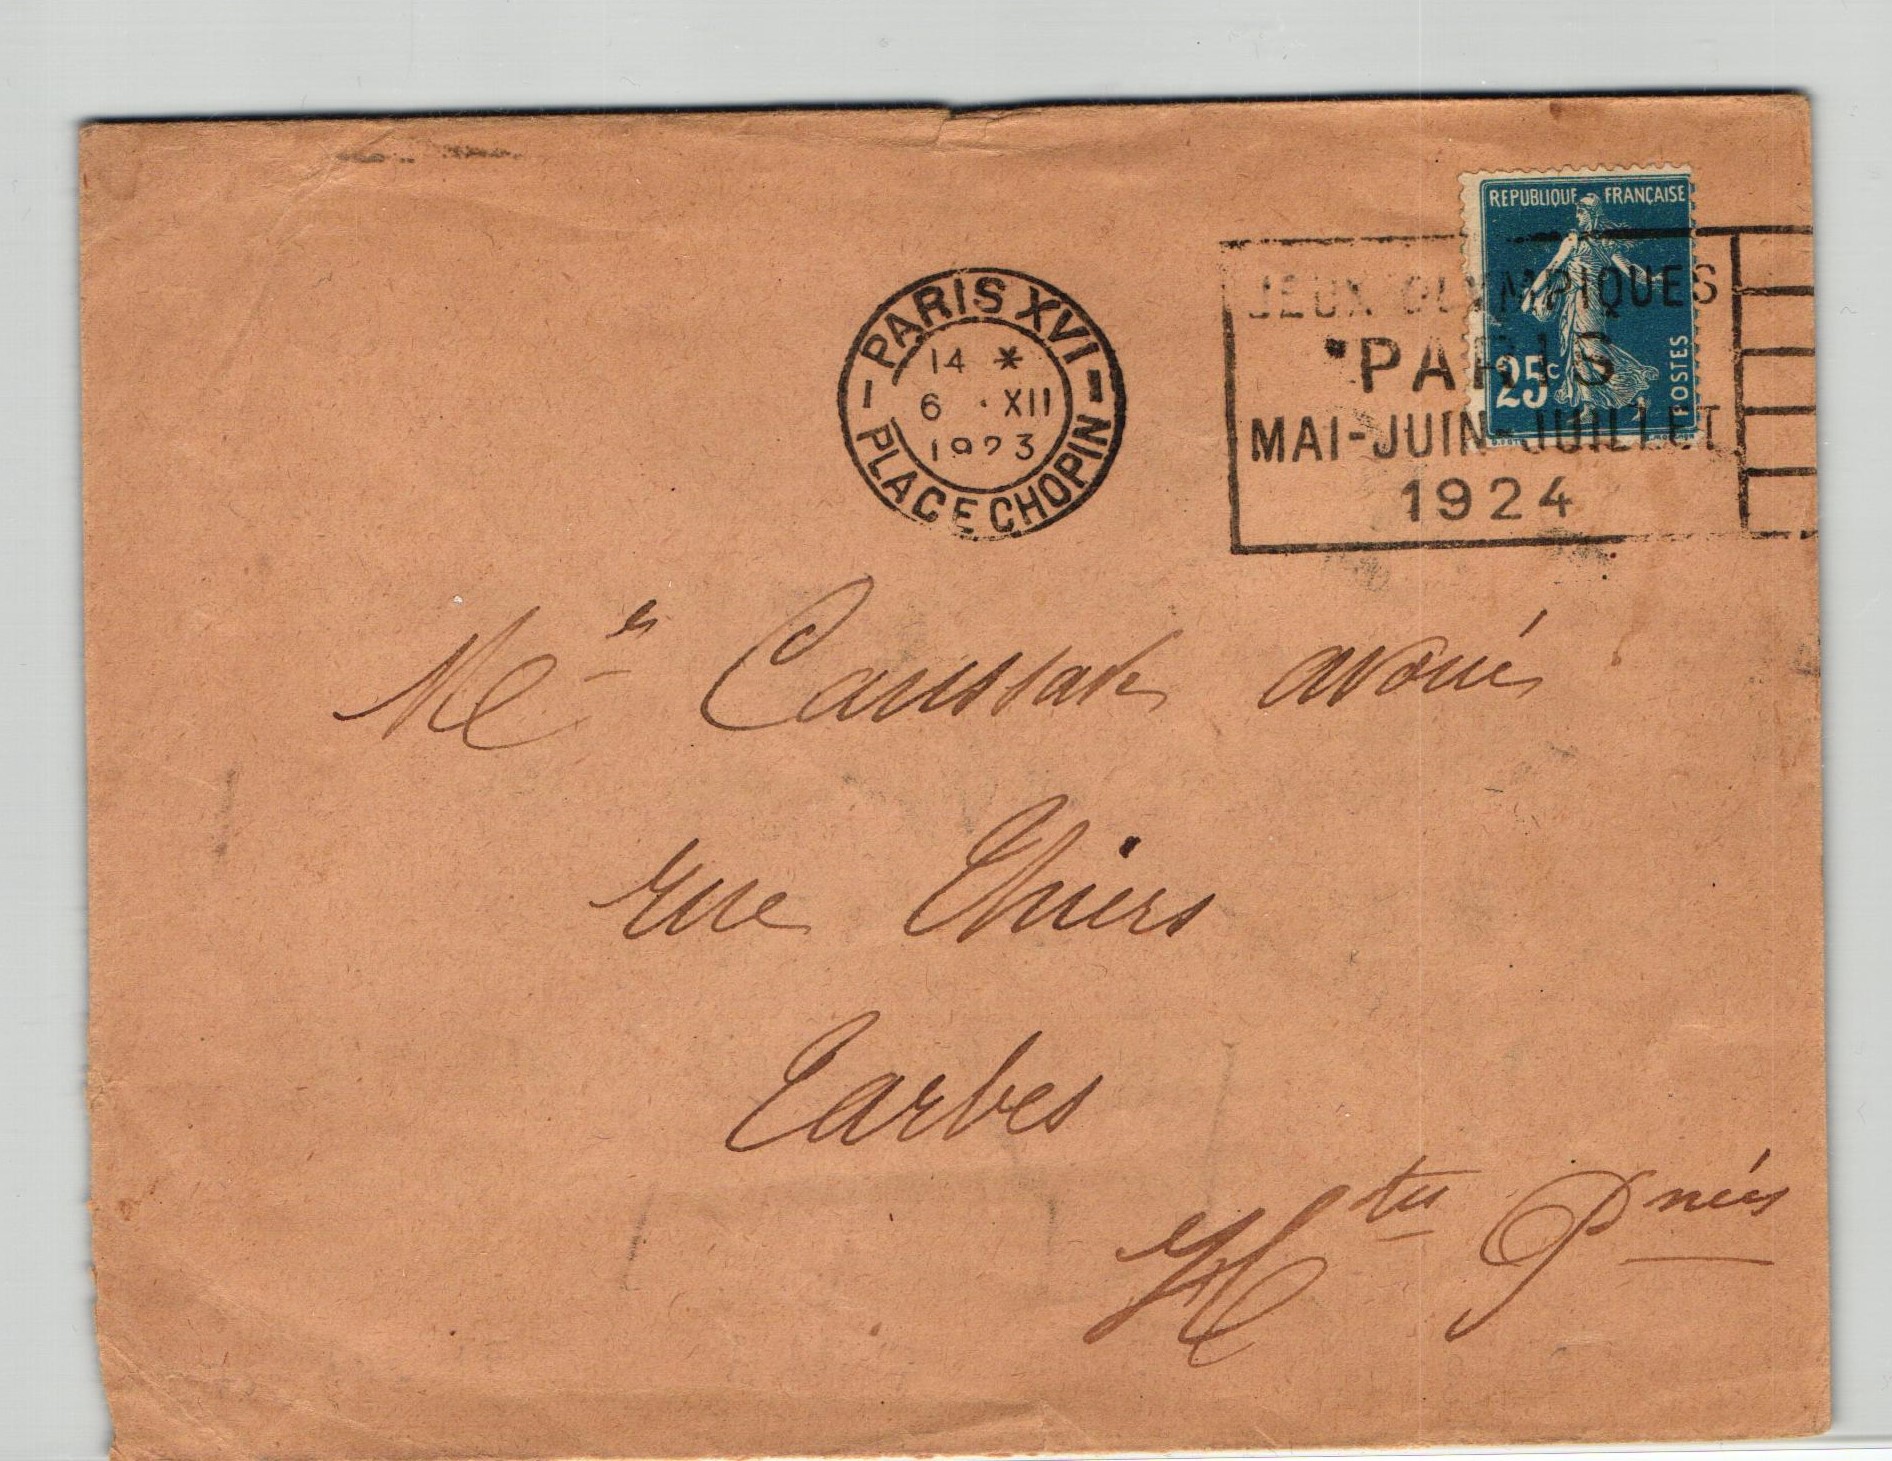 REPUBLIQUE FRANÇAISE
25c
POSTES
PARIS XVI
14 *
6 · XII
1923
PLACE CHOPIN
JEUX OLYMPIQUES
PARIS
MAI-JUIN-JUILLET
1924
avoué
rue Thiers
Tarbes
Htes Pnées